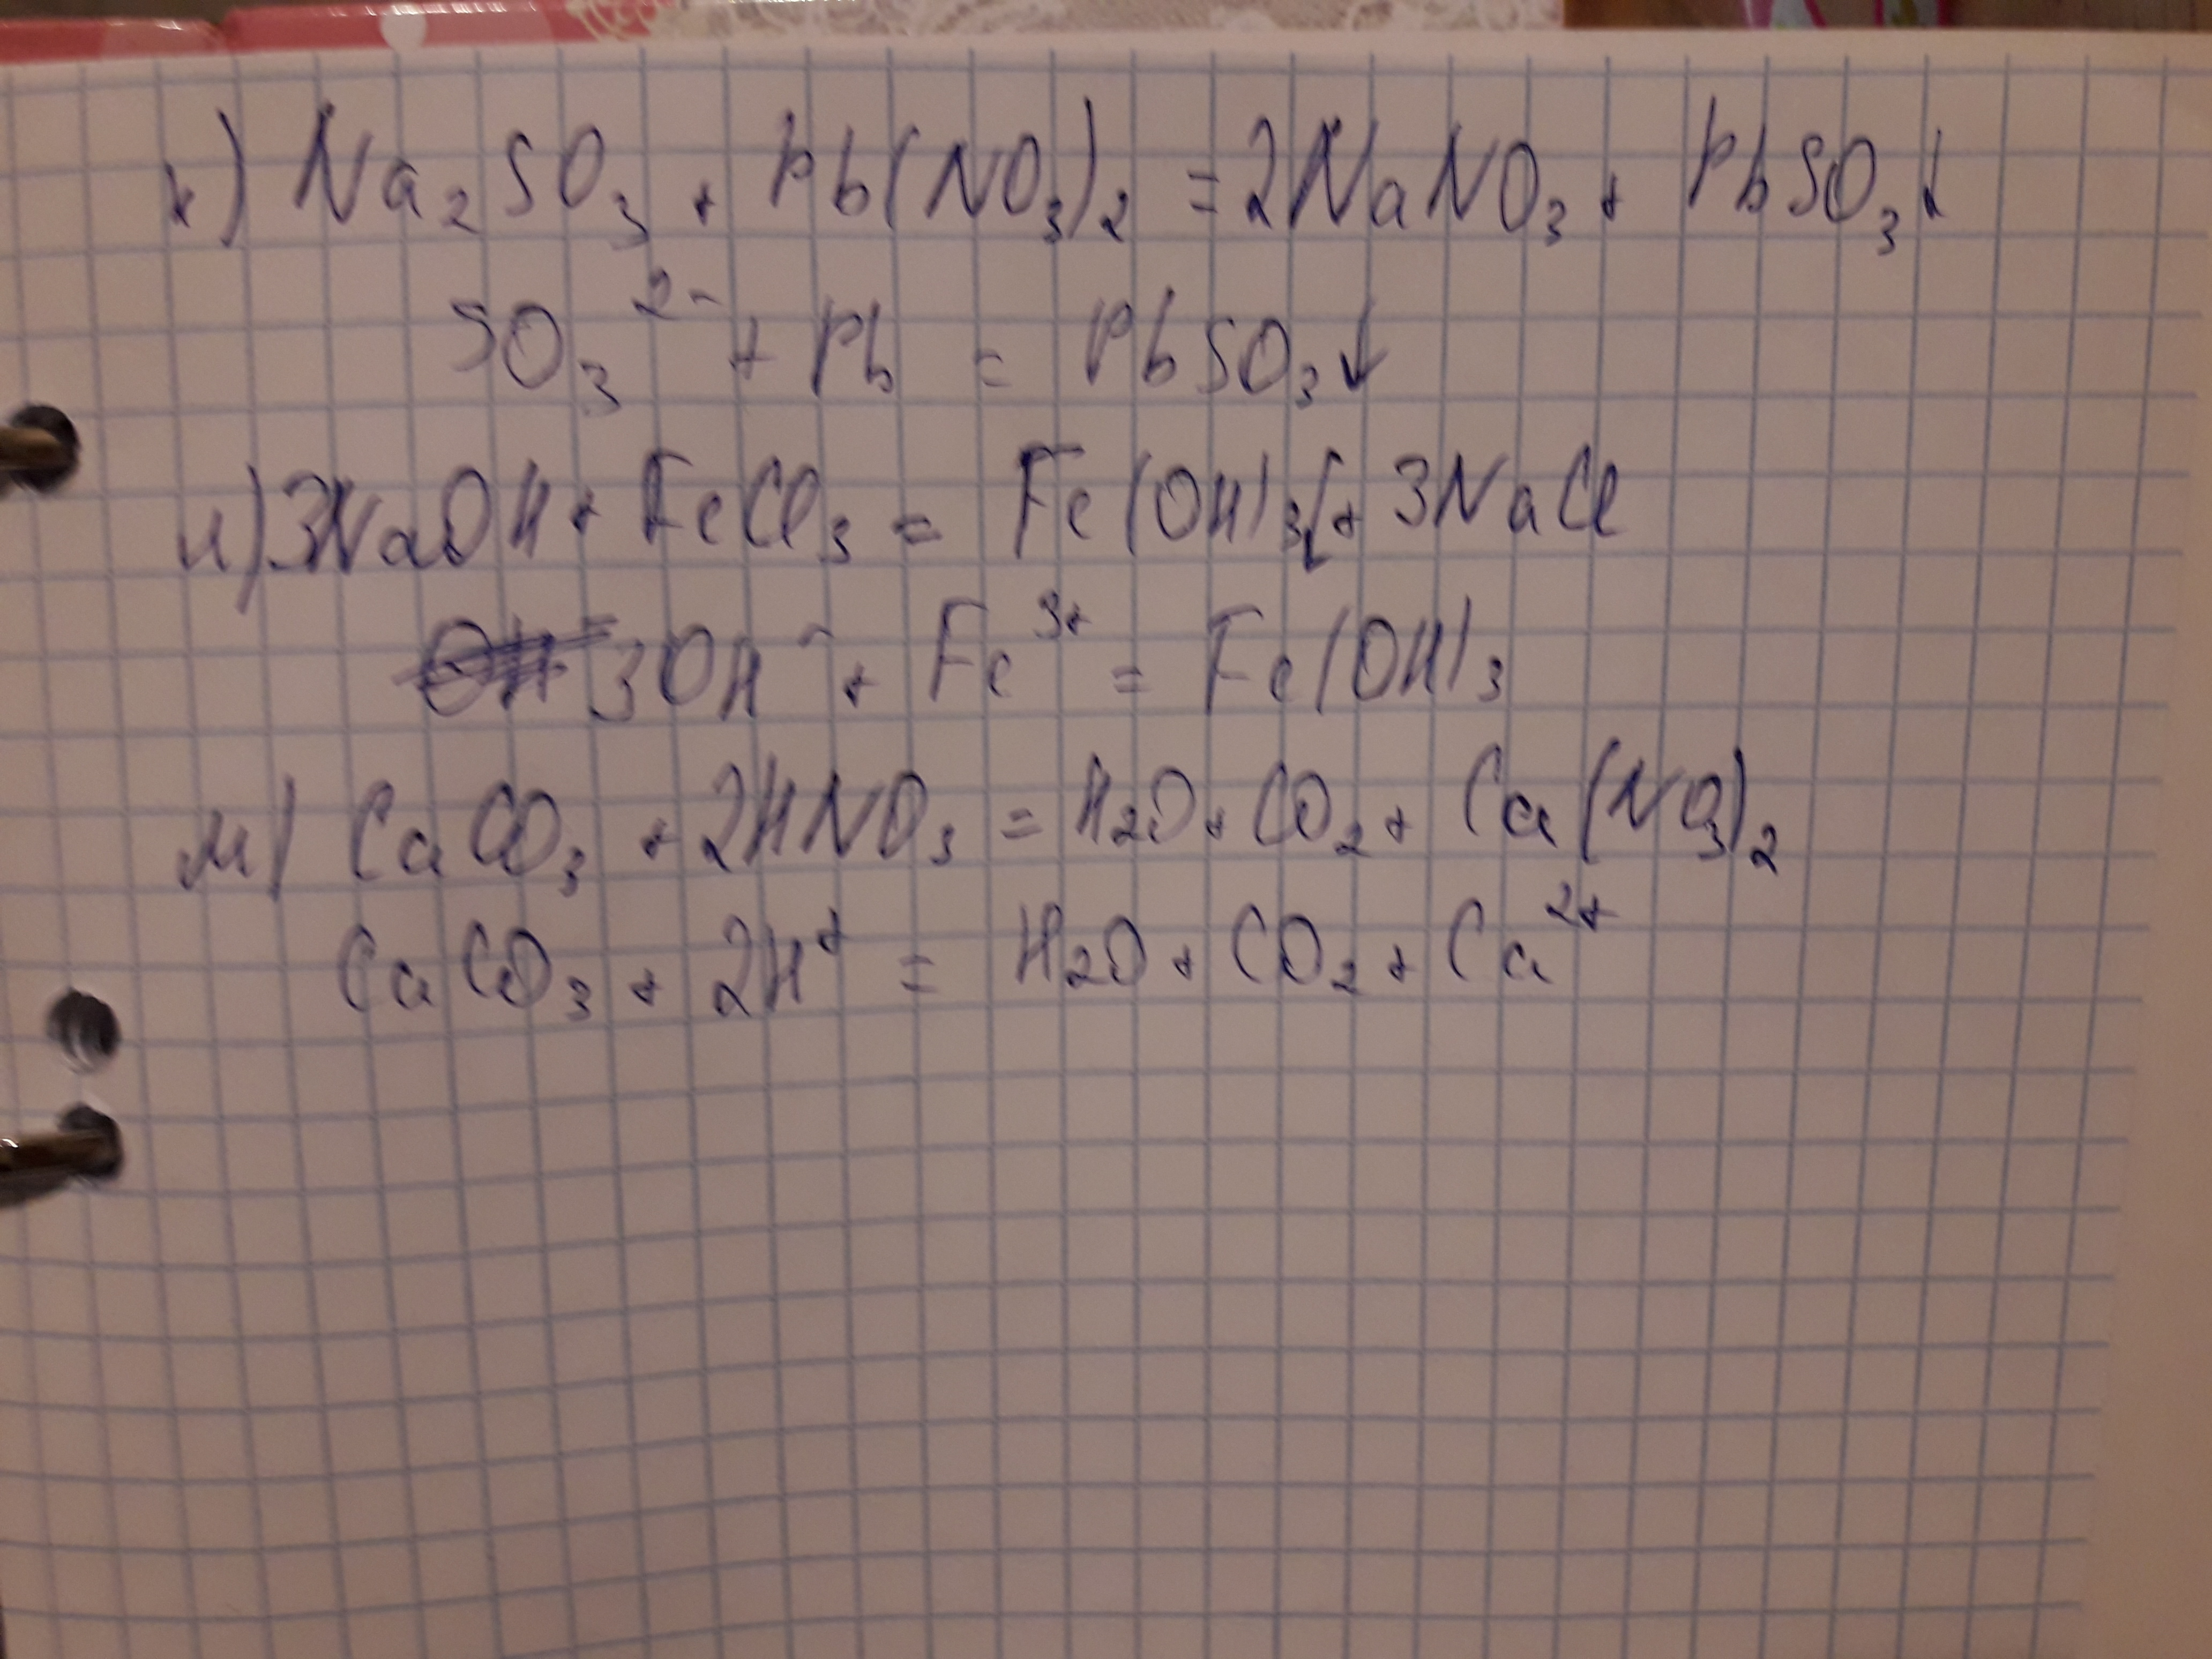 к) Na₂SO₃ + Pb(NO₃)₂ = 2NaNO₃ + PbSO₃↓
SO₃²⁻ + Pb = PbSO₃↓
л) 3NaOH + FeCl₃ = Fe(OH)₃↓ + 3NaCl
3OH⁻ + Fe³⁺ = Fe(OH)₃
м) CaCO₃ + 2HNO₃ = H₂O + CO₂ + Ca(NO₃)₂
CaCO₃ + 2H⁺ = H₂O + CO₂ + Ca²⁺